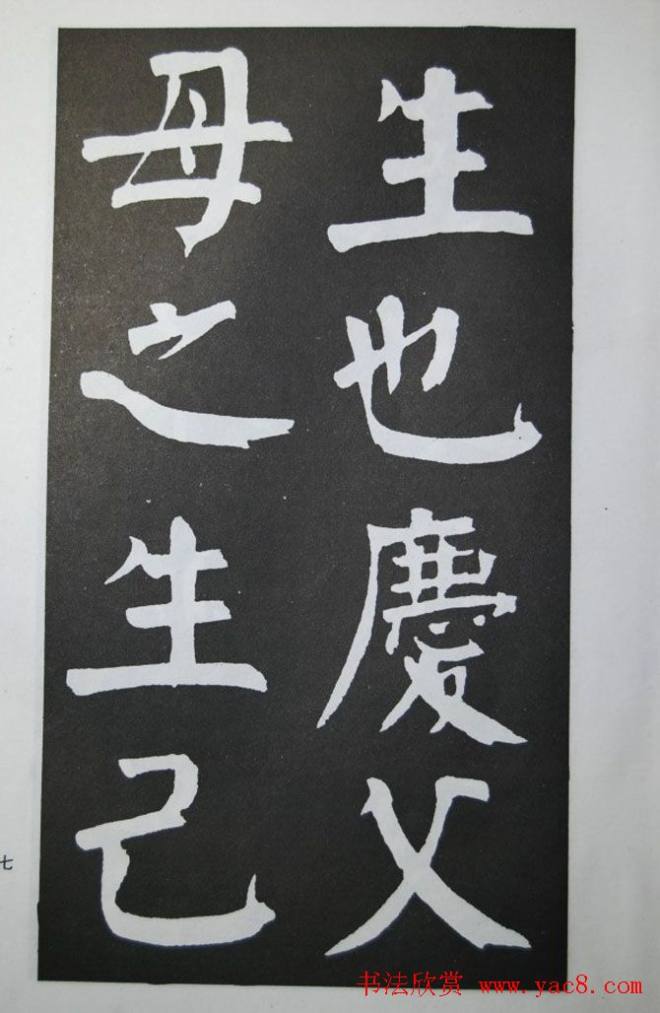 生也慶父
母之生己
七
书法欣赏 www.yac8.com